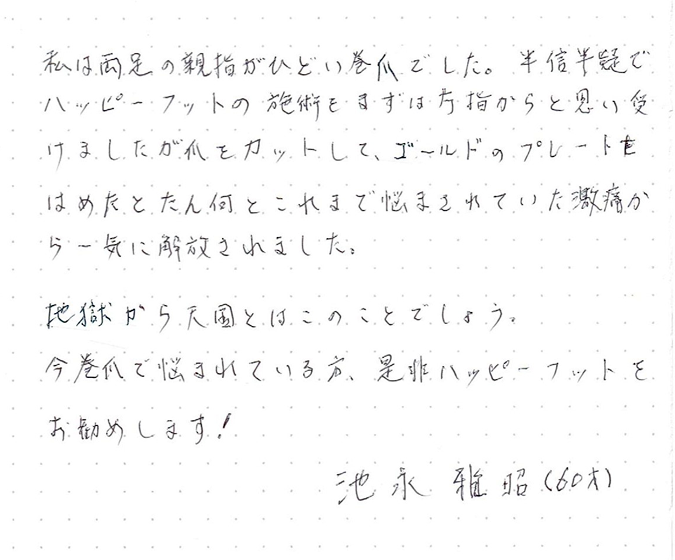 私は両足の親指がひどい巻爪でした。半信半疑で
ハッピーフットの施術をまずは片指からと思い受
けましたが爪をカットして、ゴールドのプレートを
はめたとたん何とこれまで悩まされていた激痛か
ら一気に解放されました。
地獄から天国とはこのことでしょう。
今巻爪で悩まれている方、是非ハッピーフットを
お勧めします!
池永雅昭(60才)